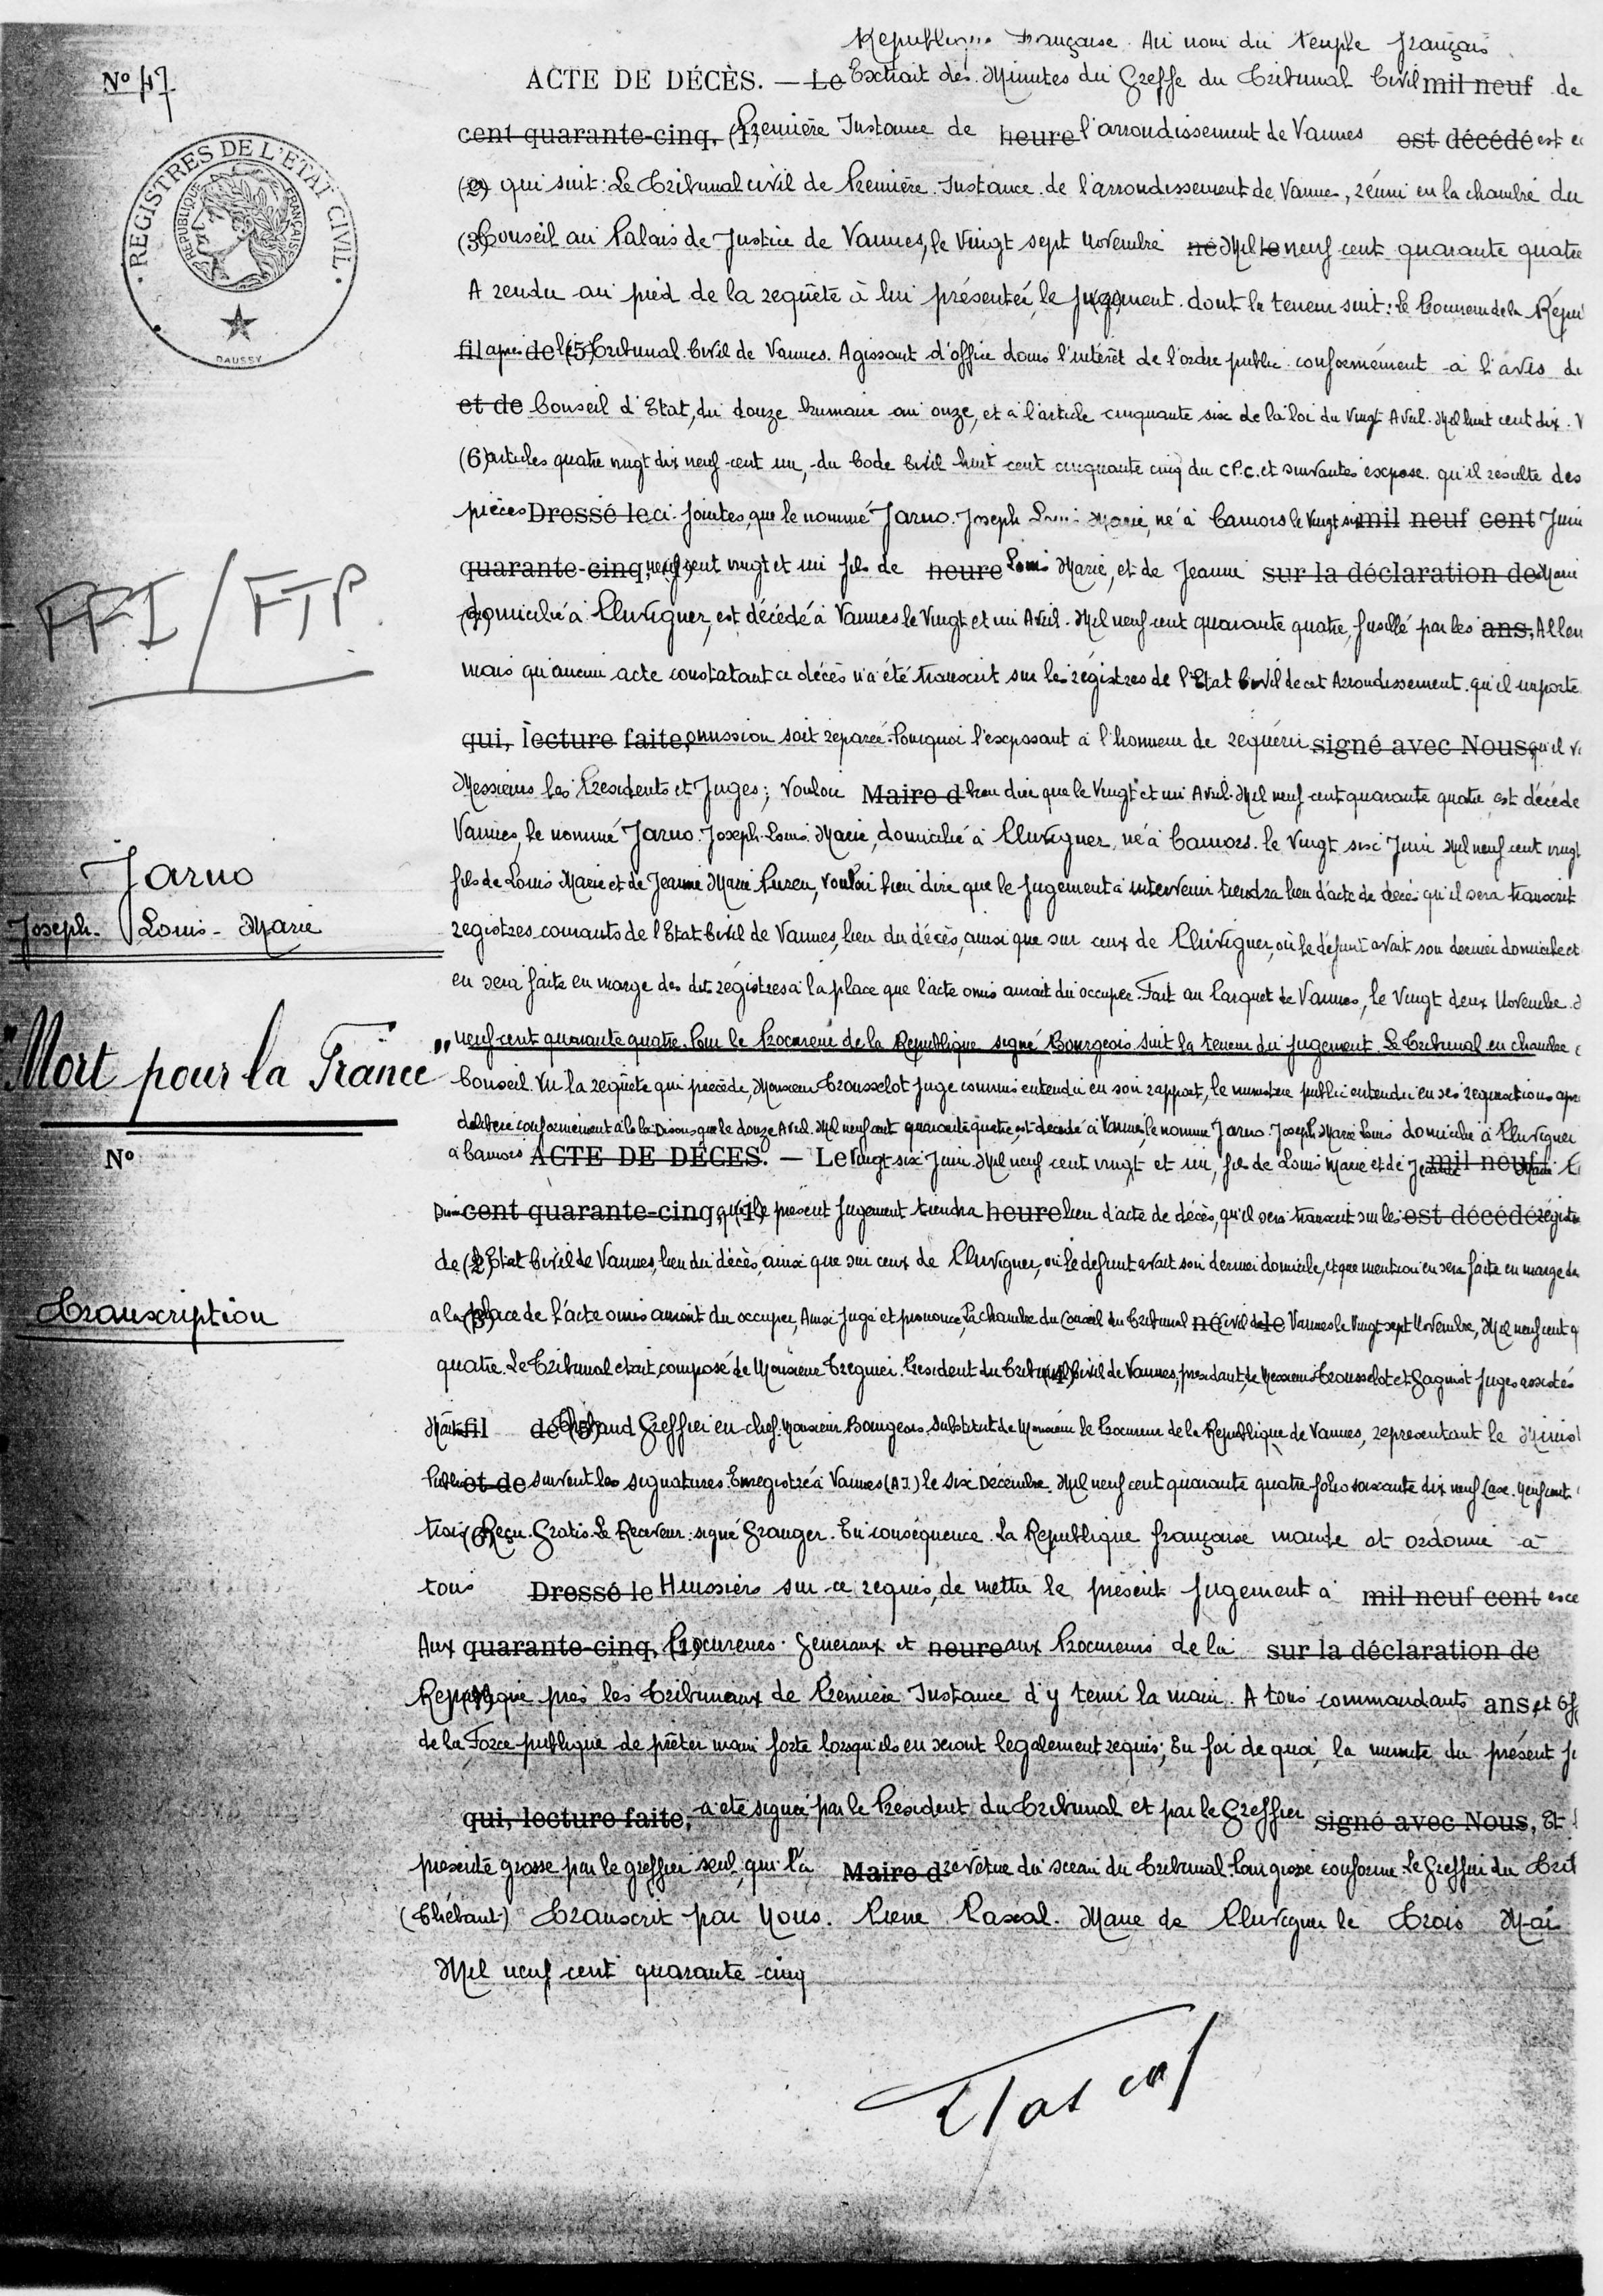 République Française. Au nom du Peuple français
Nº 47
ACTE DE DÉCÈS. — Le Extrait des Minutes du Greffe du Tribunal Civil mil neuf de
cent quarante-cinq, (1) Première Instance de heure l'arrondissement de Vannes est décédé est
(2) qui suit: Le Tribunal civil de Première Instance de l'arrondissement de Vannes, réuni en la chambre du
(3) Conseil au Palais de Justice de Vannes, le Vingt sept Novembre né Mil le neuf cent quarante quatre
A rendu au pied de la requête à lui présentée, le jugement dont la teneur suit: le Procureur de la Répu
fil après de le (5) Tribunal Civil de Vannes. Agissant d'office dans l'intérêt de l'ordre public conformément à l'avis du
et de Conseil d'Etat, du douze brumaire an onze, et à l'article cinquante six de la loi du Vingt Avril Mil huit cent dix. V
(6) articles quatre vingt dix neuf cent un, du Code Civil huit cent cinquante cinq du C.P.C. et suivantes expose qu'il résulte des
pièces Dressé le ci-jointes, que le nommé Jarno Joseph Louis Marie, né à Camors le Vingt six mil neuf cent Juin
quarante-cinq, neuf cent vingt et un fils de heure Louis Marie, et de Jeanne sur la déclaration de Marie
domicilié à Pluvigner, est décédé à Vannes le Vingt et un Avril Mil neuf cent quarante quatre, fusillé par les ans, Allem
mais qu'aucun acte constatant ce décès n'a été transcrit sur les régistres de l'Etat Civil de cet Arrondissement. qu'il importe
qui, lecture faite, omission soit réparée. Pourquoi l'exposant a l'honneur de requérir signé avec Nous, qu'il
Messieurs les Présidents et Juges; Vouloir Maire d bien dire que le Vingt et un Avril Mil neuf cent quarante quatre est décédé
Vannes, le nommé Jarno Joseph Louis Marie, domicilié à Pluvigner, né à Camors le Vingt six Juin Mil neuf cent vingt
Jarno
Joseph. Louis - Marie
fils de Louis Marie et de Jeanne Marie Puren, vouloir bien dire que le Jugement à intervenir tiendra lieu d'acte de décès qu'il sera transcrit
registres courants de l'Etat Civil de Vannes, lieu du décès, ainsi que sur ceux de Pluvigner, où le défunt avait son dernier domicile et
en sera faite en marge des dits régistres à la place que l'acte omis aurait du occuper. Fait au Parquet de Vannes, le Vingt deux Novembre
neuf cent quarante quatre. Pour le Procureur de la Republique signé Bourgeois suit la teneur du jugement. Le Tribunal en chambre
"Mort pour la France"
Conseil. Vu la requête qui précède, Monsieur Trousselot Juge commis entendu en son rapport, le ministère public entendu en ses réquisitions apr
délibéré conformément à la loi Disons que le douze Avril Mil neuf cent quarante quatre, est décédé à Vannes, le nommé Jarno Joseph Marie Louis domicilié à Pluvigner
Nº
à Camors ACTE DE DÉCÈS. — Le Vingt six Juin Mil neuf cent vingt et un, fils de Louis Marie et de Jeanne mil neuf Marie
cent quarante-cinq, que (1) le présent Jugement tiendra heure lieu d'acte de décès, qu'il sera transcrit sur les est décédé régistres
de (2) l'Etat Civil de Vannes, lieu du décès, ainsi que sur ceux de Pluvigner, où le défunt avait son dernier domicile, et que mention en sera faite en marge de
Transcription
a la (3) place de l'acte omis aurait du occuper, Ainsi jugé et prononcé, La chambre du Conseil du Tribunal né Civil de le Vannes le Vingt sept Novembre, Mil neuf cent q
quatre. Le Tribunal etait composé de Monsieur Treguier. President du Tribunal (4) Civil de Vannes, présidant, de Messieurs Trousselot et Gaguiot Juges assistés
Maitre fil de (5) Greffier en chef. Monsieur Bourgeois, substitut de Monsieur le Procureur de la Republique de Vannes, représentant le Minist
Public et de suivent les signatures. Enregistré à Vannes (A.J.) le six Décembre Mil neuf cent quarante quatre folio soixante dix neuf Case. Neuf cent
trois (6) Reçu. Gratis. Le Receveur: signé Granger. En conséquence. La Republique française mande et ordonne à
tous Dressé le Huissiers sur ce requis, de mettre le présent jugement à mil neuf cent exe
Aux quarante-cinq, Procureurs Généraux et heure aux Procureurs de la sur la déclaration de
République près les Tribunaux de Première Instance d'y tenir la main. A tous commandants ans, et Off
de la Force publique de prêter main forte lorsqu'ils en seront légalement requis; En foi de quoi, la minute du présent j
qui, lecture faite, a été signée par le Président du Tribunal et par le Greffier signé avec Nous, Et
présente grosse par le greffier seul, qui l'a Maire d revêtue du sceau du Tribunal. Pour grosse conforme. Le Greffier du Trib
(Thébaut) Transcrit par Nous. Pierre Pascal. Maire de Pluvigner le Trois Mai
Mil neuf cent quarante cinq
Pascal
REGISTRES DE L'ETAT CIVIL
REPUBLIQUE FRANÇAISE
DAUSSY
FFI / FTP.